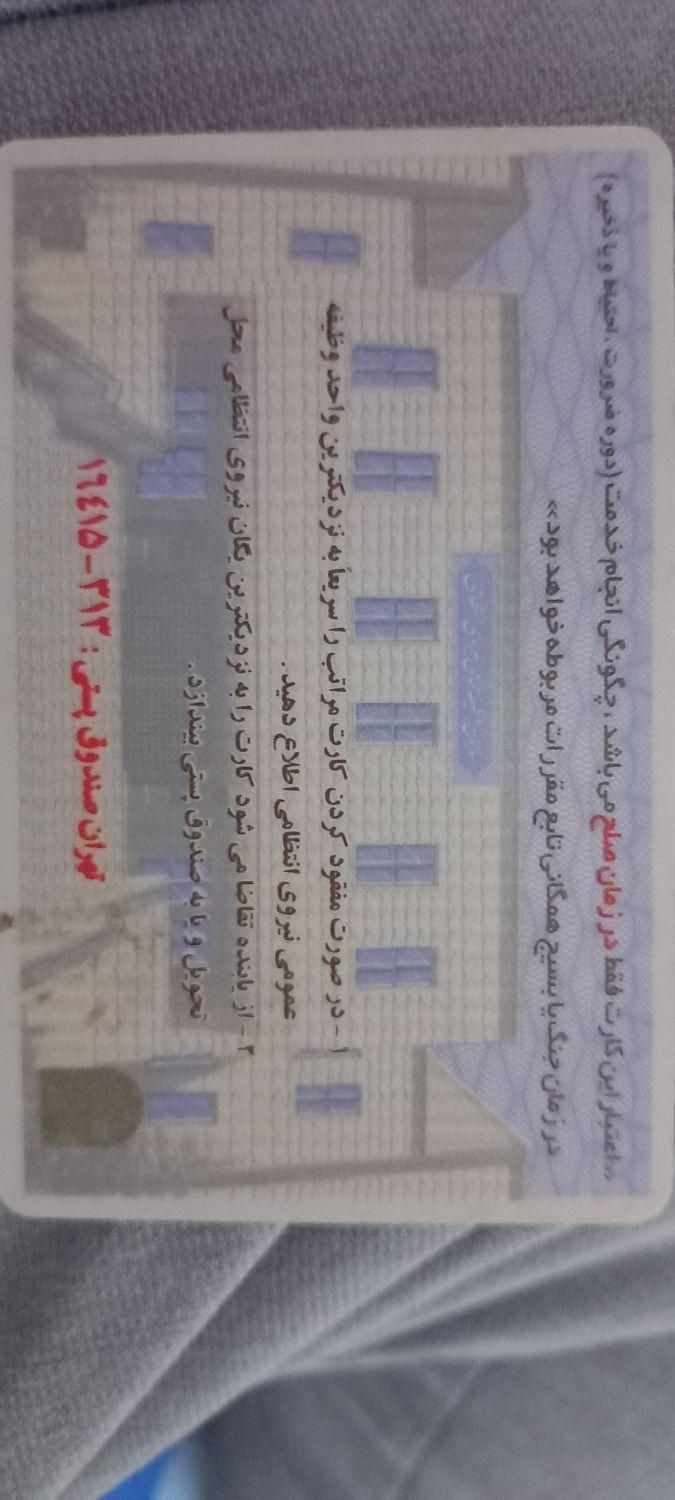 «اعتبار این کارت فقط در زمان صلح می باشد ، چگونگی انجام خدمت (دوره ضرورت ، احتیاط و یا ذخیره)
در زمان جنگ یا بسیج همگانی تابع مقررات مربوطه خواهد بود»
۱ - در صورت مفقود کردن کارت مراتب را سریعاً به نزدیکترین واحد وظیفه
عمومی نیروی انتظامی اطلاع دهید .
۲ - از یابنده تقاضا می شود کارت را به نزدیکترین یگان نیروی انتظامی محل
تحویل و یا به صندوق پستی بیندازد .
تهران صندوق پستی : ۳۱۳ - ۱۹٤۱۵